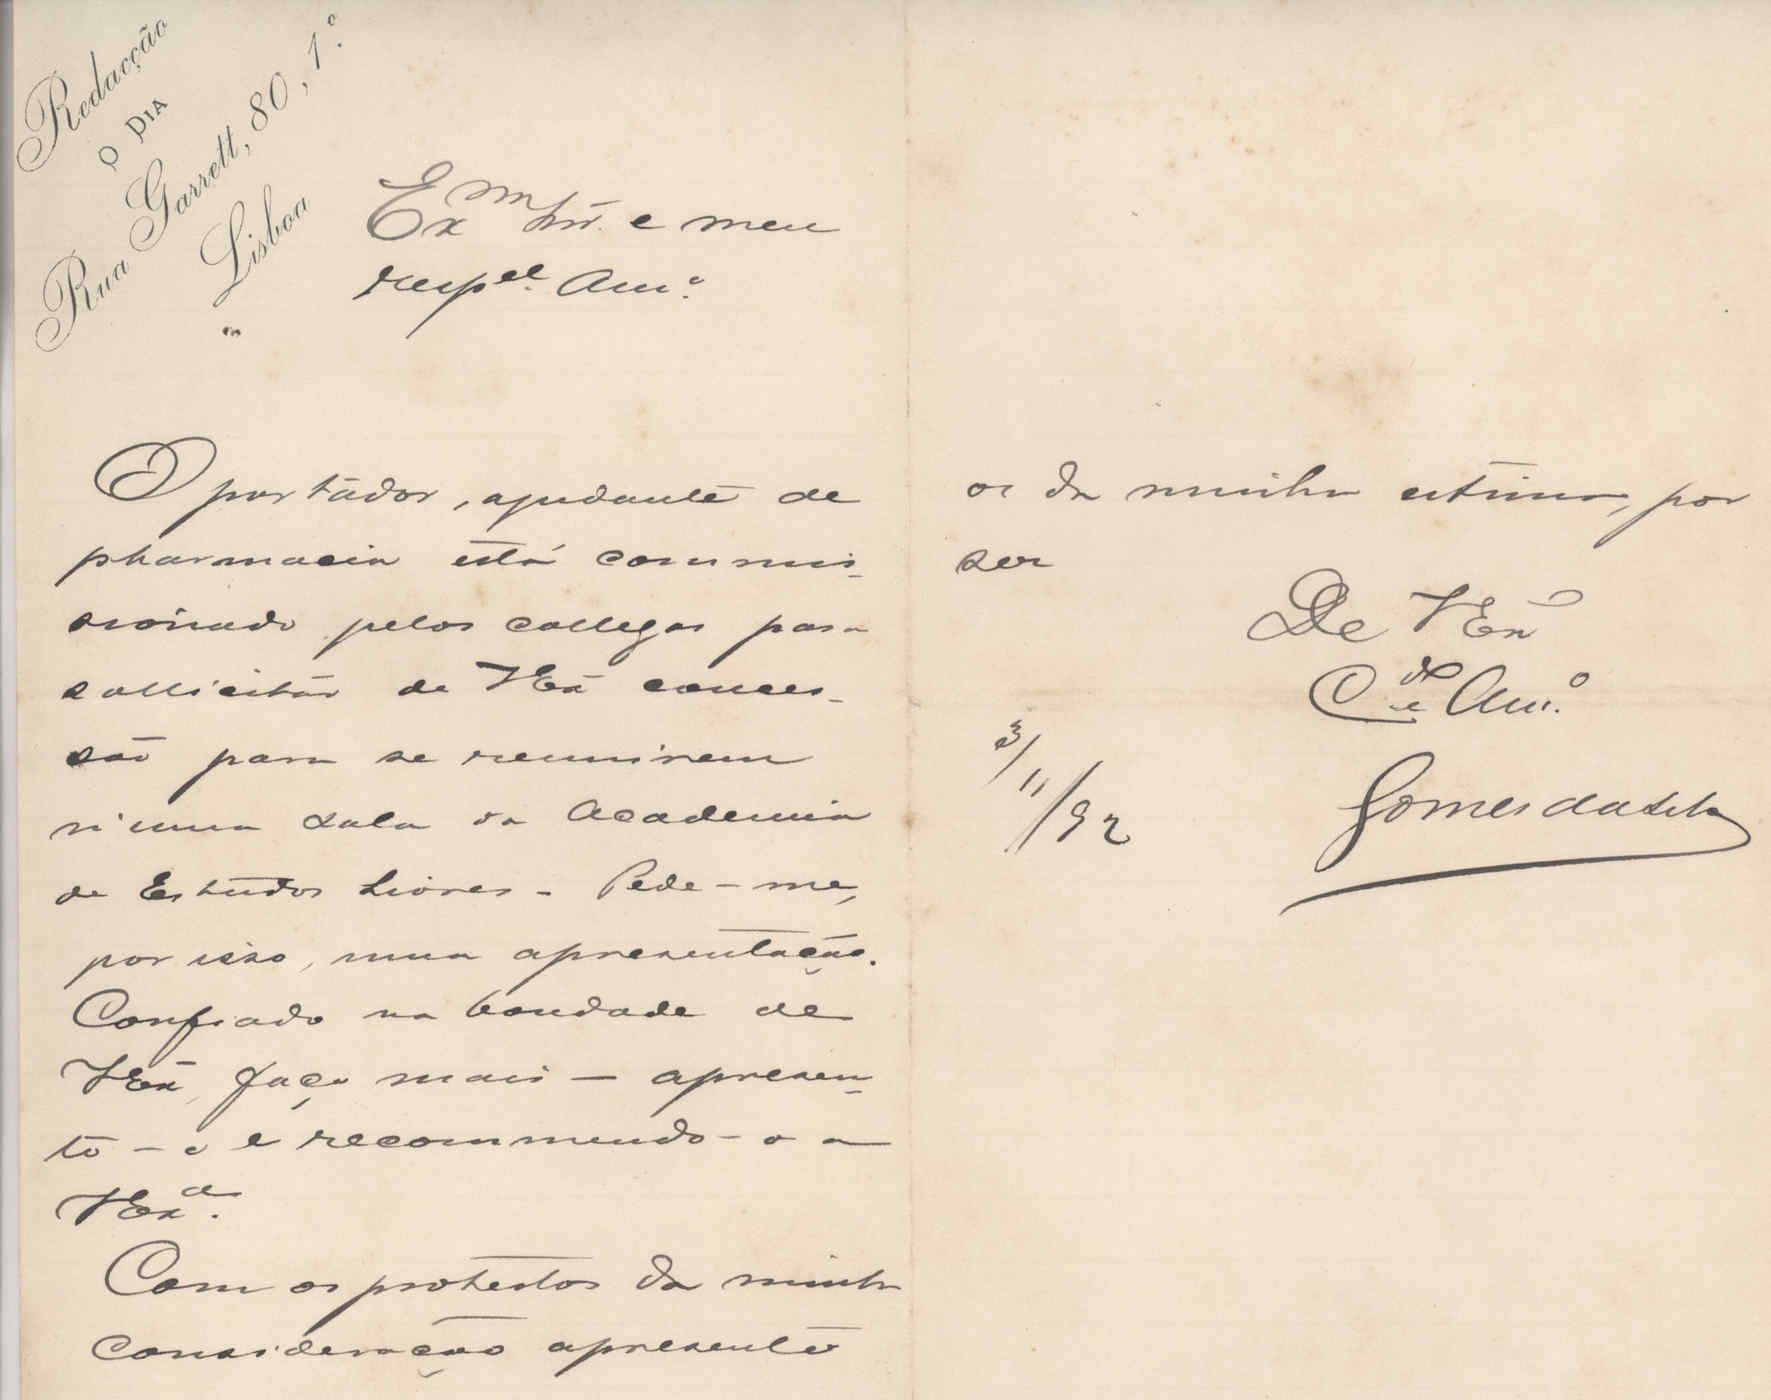 Redacção
O DIA
Rua Garrett, 80, 1.º
Lisboa
Exm Snr. e meu
respel. Amº.
O portador, ajudante de
pharmacia está commis-
sionado pelos collegas para
sollicitar de VExª conces-
são para se reunirem
n'uma sala da Academia
de Estudos Livres. Pede-me,
por isso, uma apresentação.
Confiado na bondade de
VExª, faço mais — apresen-
to-o e recommendo-o a
VExª.
Com os protestos da minha
consideração apresento
os da minha estima, por
ser
De VExª
Cdº e Amº.
3/11/92
Gomes da Silva